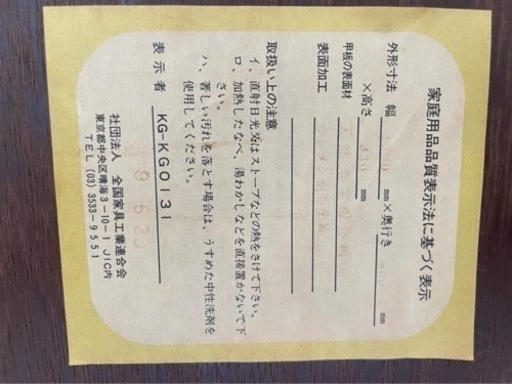 家庭用品品質表示法に基づく表示
外形寸法 幅 mm×奥行き mm
×高さ 330 mm
甲板の表面材
表面加工
取扱い上の注意
イ、直射日光又はストーブなどの熱をさけて下さい。
ロ、加熱したなべ、湯わかしなどを直接置かないで下
さい。
ハ、著しい汚れを落とす場合は、うすめた中性洗剤を
使用してください。
表示者 KG-KG0131
社団法人 全国家具工業連合会
東京都中央区晴海3-10-1 JIC内
TEL (03) 3533-9551